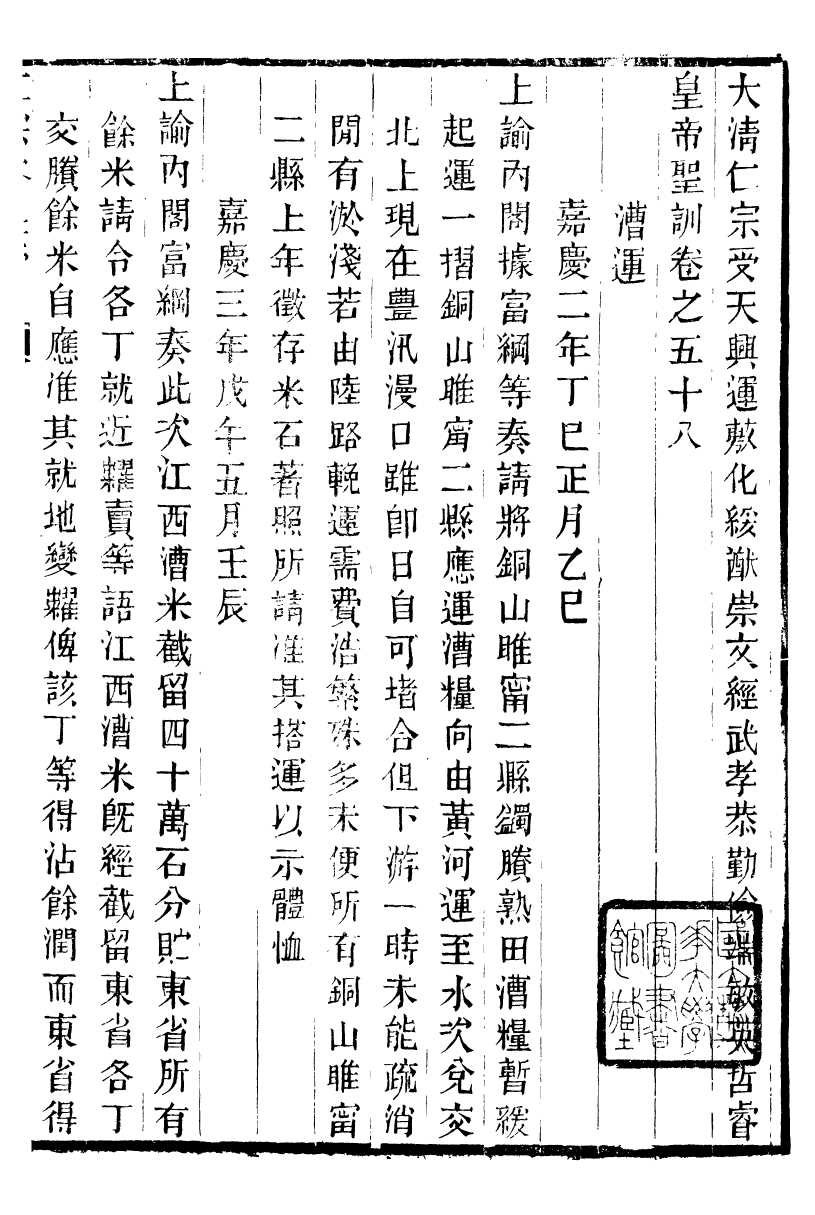 大清仁宗受天興運敷化綏猷崇文經武孝恭勤儉端敏英哲睿
皇帝聖訓卷之五十八
漕運
嘉慶二年丁巳正月乙巳
上諭內閣據富綱等奏請將銅山睢甯二縣蠲賸熟田漕糧暫緩
起運一摺銅山睢甯二縣應運漕糧向由黃河運至水次兌交
北上現在豐汛漫口雖卽日自可堵合但下游一時未能疏消
閒有淤淺若由陸路輓運需費浩繁殊多未便所有銅山睢甯
二縣上年徵存米石著照所請准其搭運以示體恤
嘉慶三年戊午五月壬辰
上諭內閣富綱奏此次江西漕米截留四十萬石分貯東省所有
餘米請令各丁就近糶賣等語江西漕米既經截留東省各丁
交賸餘米自應准其就地變糶俾該丁等得沾餘潤而東省得
大學
圖書
館藏